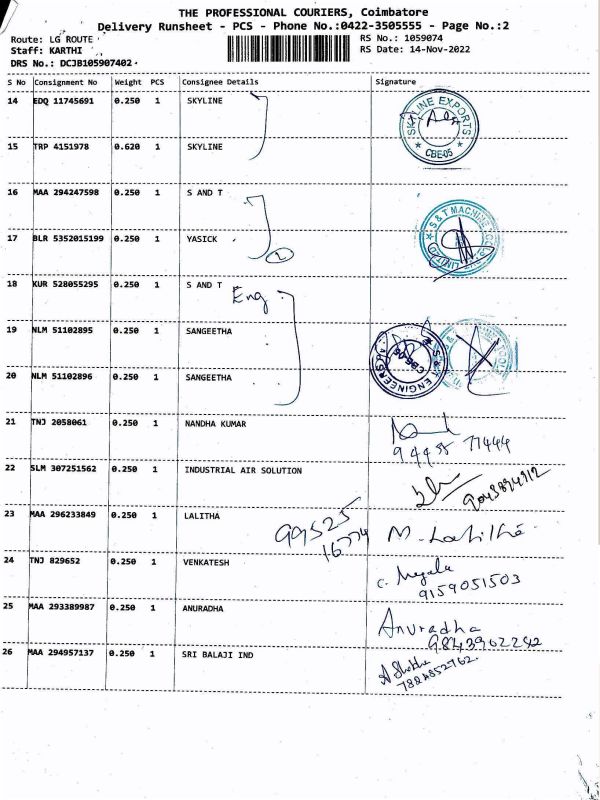 THE PROFESSIONAL COURIERS, Coimbatore
Delivery Runsheet - PCS - Phone No.:0422-3505555 - Page No.:2
Route: LG ROUTE
RS No.: 1059074
Staff: KARTHI
RS Date: 14-Nov-2022
DRS No.: DCJB105907402
S No Consignment No Weight PCS Consignee Details Signature
14 EDQ 11745691 0.250 1 SKYLINE
SKYLINE EXPORTS
CBE-05
15 TRP 4151978 0.620 1 SKYLINE
16 MAA 294247598 0.250 1 S AND T
S & T MACHINE
LIMITED
17 BLR 5352015199 0.250 1 YASICK
2
18 KUR 528055295 0.250 1 S AND T
Eng
19 NLM 51102895 0.250 1 SANGEETHA
S & T ENGINEERS
CBE-05
20 NLM 51102896 0.250 1 SANGEETHA
21 TNJ 2058061 0.250 1 NANDHA KUMAR
77444
22 SLM 307251562 0.250 1 INDUSTRIAL AIR SOLUTION
23 MAA 296233849 0.250 1 LALITHA
99525
16774
M. Lalitha
24 TNJ 829652 0.250 1 VENKATESH
C. Megala
9159051503
25 MAA 293389987 0.250 1 ANURADHA
Anuradha
9843902242
26 MAA 294957137 0.250 1 SRI BALAJI IND